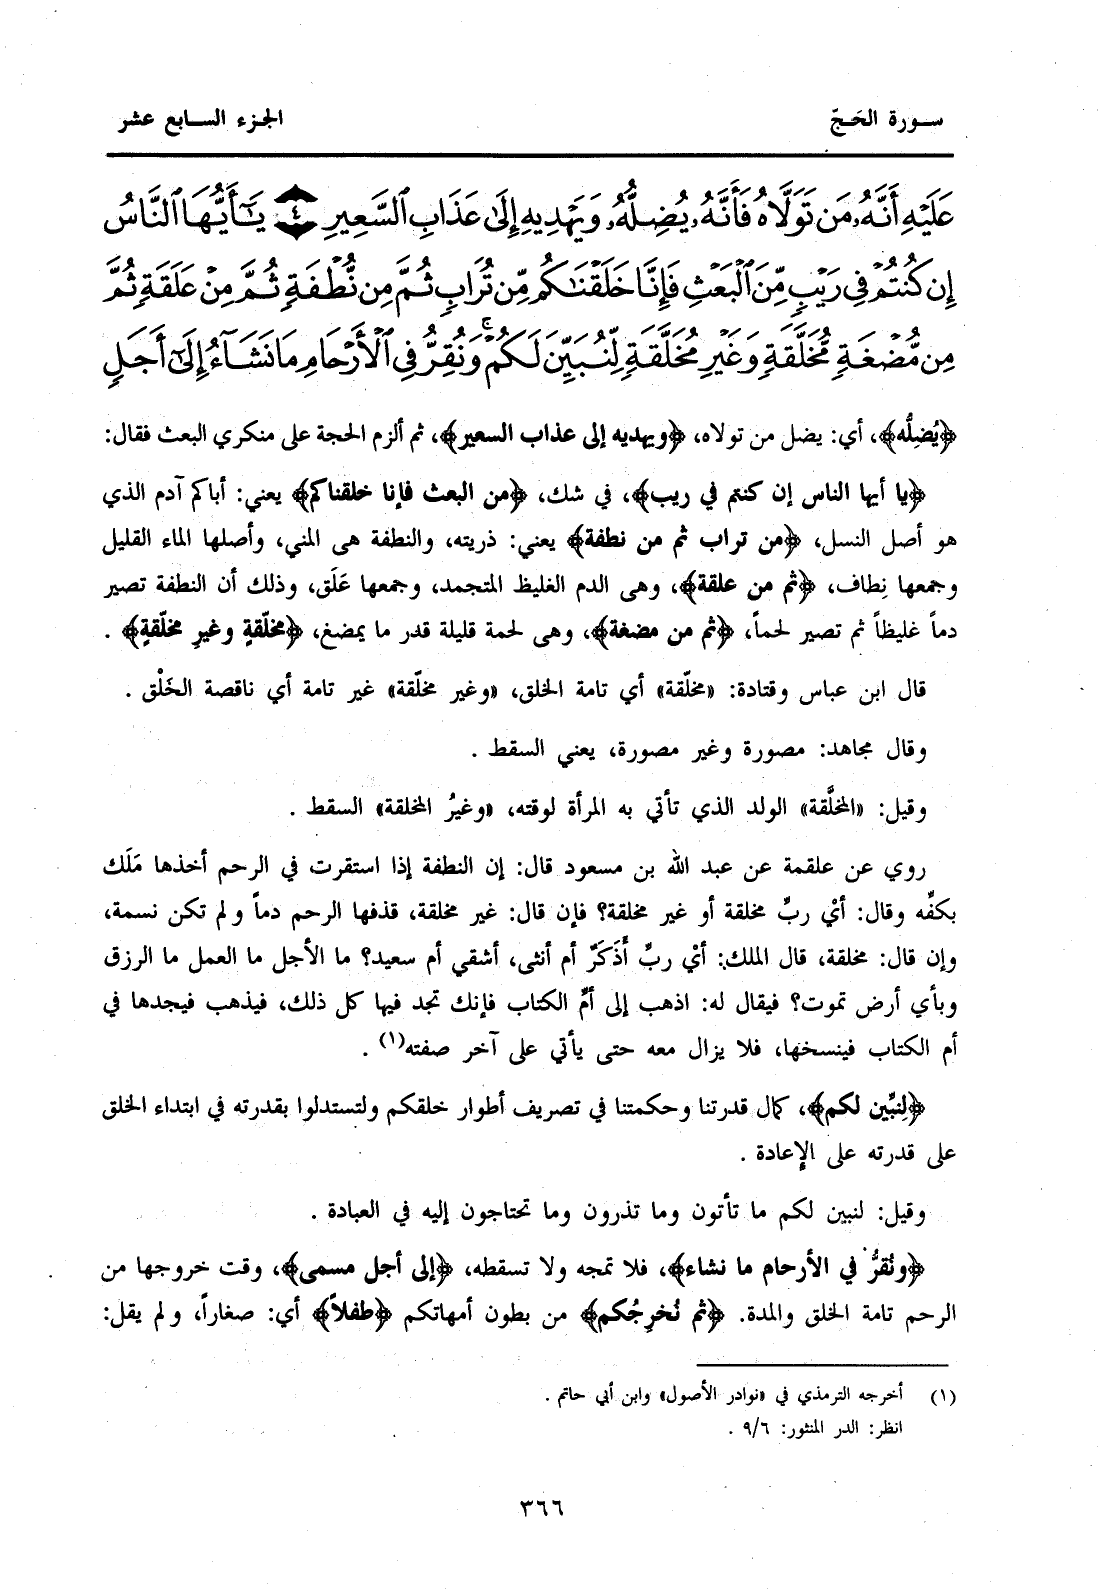 سورة الحَجّ
الجزء السابع عشر
عَلَيْهِ أَنَّهُۥ مَن تَوَلَّاهُ فَأَنَّهُۥ يُضِلُّهُۥ وَيَهْدِيهِ إِلَىٰ عَذَابِ ٱلسَّعِيرِ ٤ يَـٰٓأَيُّهَا ٱلنَّاسُ
إِن كُنتُمْ فِى رَيْبٍ مِّنَ ٱلْبَعْثِ فَإِنَّا خَلَقْنَـٰكُم مِّن تُرَابٍ ثُمَّ مِن نُّطْفَةٍ ثُمَّ مِنْ عَلَقَةٍ ثُمَّ
مِن مُّضْغَةٍ مُّخَلَّقَةٍ وَغَيْرِ مُخَلَّقَةٍ لِّنُبَيِّنَ لَكُمْ ۚ وَنُقِرُّ فِى ٱلْأَرْحَامِ مَا نَشَآءُ إِلَىٰٓ أَجَلٍ
﴿يُضِلُّه﴾، أي: يضل من تولاه، ﴿ويهديه إلى عذاب السعير﴾، ثم ألزم الحجة على منكري البعث فقال:
﴿يا أيها الناس إن كنتم في ريب﴾، في شك، ﴿من البعث فإنا خلقناكم﴾ يعني: أباكم آدم الذي
هو أصل النسل، ﴿من تراب ثم من نطفة﴾ يعني: ذريته، والنطفة هى المني، وأصلها الماء القليل
وجمعها نِطاف، ﴿ثم من علقة﴾، وهى الدم الغليظ المتجمد، وجمعها عَلَق، وذلك أن النطفة تصير
دماً غليظاً ثم تصير لحماً، ﴿ثم من مضغة﴾، وهى لحمة قليلة قدر ما يمضغ، ﴿مخلّقةٍ وغيرِ مخلّقةٍ﴾ .
قال ابن عباس وقتادة: «مخلّقة» أي تامة الخلق، «وغير مخلّقة» غير تامة أي ناقصة الخَلْق .
وقال مجاهد: مصورة وغير مصورة، يعني السقط .
وقيل: «المخلَّقة» الولد الذي تأتي به المرأة لوقته، «وغيرُ المخلقة» السقط .
روي عن علقمة عن عبد الله بن مسعود قال: إن النطفة إذا استقرت في الرحم أخذها مَلَك
بكفِّه وقال: أيْ ربِّ مخلقة أو غير مخلقة؟ فإن قال: غير مخلقة، قذفها الرحم دماً ولم تكن نسمة،
وإن قال: مخلقة، قال الملك: أيْ ربِّ أَذَكَرٌ أم أنثى، أشقي أم سعيد؟ ما الأجل ما العمل ما الرزق
وبأي أرض تموت؟ فيقال له: اذهب إلى أمِّ الكتاب فإنك تجد فيها كل ذلك، فيذهب فيجدها في
أم الكتاب فينسخها، فلا يزال معه حتى يأتي على آخر صفته(١) .
﴿لِنبِّين لكم﴾، كمال قدرتنا وحكمتنا في تصريف أطوار خلقكم ولتستدلوا بقدرته في ابتداء الخلق
على قدرته على الإعادة .
وقيل: لنبين لكم ما تأتون وما تذرون وما تحتاجون إليه في العبادة .
﴿ونُقرُّ في الأرحام ما نشاء﴾، فلا تمجه ولا تسقطه، ﴿إلى أجل مسمى﴾، وقت خروجها من
الرحم تامة الخلق والمدة. ﴿ثم نُخرِجُكم﴾ من بطون أمهاتكم ﴿طفلاً﴾ أي: صغاراً، ولم يقل:
(١) أخرجه الترمذي في «نوادر الأصول» وابن أبي حاتم .
انظر: الدر المنثور: ٩/٦ .
٣٦٦